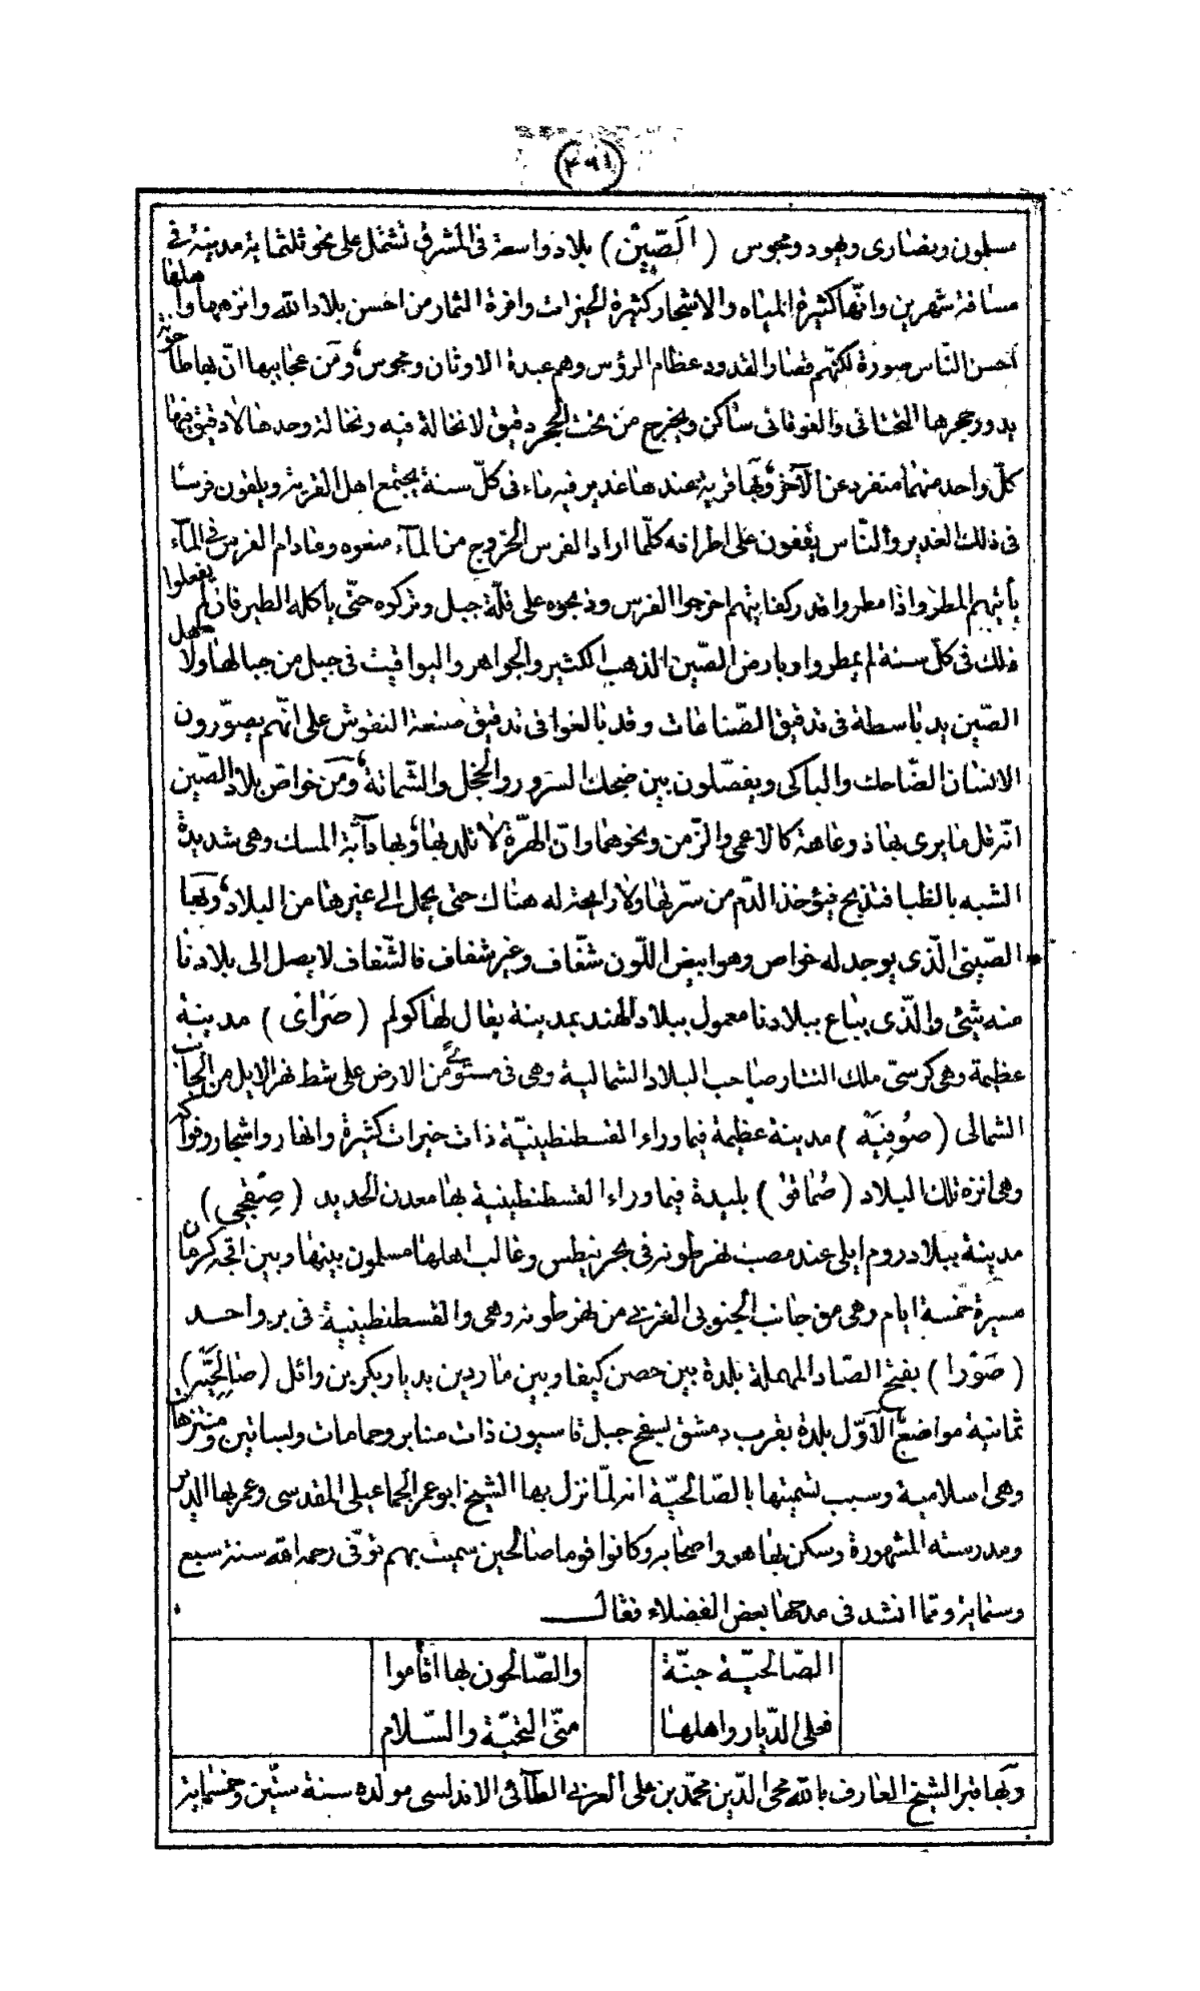 (٤٩١)
مسلمون ونصارى ويهود ومجوس (الصِّين) بلاد واسعة فى المشرق تشتمل على نحو ثلثماية مدينة فى
مسافة شهرين وانّها كثيرة المياه والاشجار كثيرة الخيرات وافرة الثمار من احسن بلاد الله وانزهها واهلها
احسن النّاس صورة لكنّهم قصار القدود عظام الرؤس وهم عبدة الاوثان ومجوس ومن عجايبها انّ بها طاحونة
يدور حجرها التحتانى والفوقانى ساكن ويخرج من تحت الحجر دقيق لا نخالة فيه ونخالة وحدها لا دقيق فيها
كلّ واحد منهما منفرد عن الآخر وبها قرية عندها غدير فيه ماء فى كلّ سنة يجتمع اهل القرية ويلقون فرسا
فى ذلك الغدير والنّاس يقفون على اطرافه كلّما اراد الفرس الخروج من المآء منعوه ومادام الفرس فى المآء
يأتيهم المطر واذا مطروا قدر كفايتهم اخرجوا الفرس وذبحوه على قلّة جبل وتركوه حتّى ياكله الطير فان لم يفعلوا
ذلك فى كلّ سنة لم يمطروا وبارض الصّين الذهب الكثير والجواهر واليواقيت فى جبل من جبالها ولاهل
الصّين يد باسطة فى تدقيق الصّناعات وقد بالغوا فى تدقيق صنعة النقوش على انّهم يصوّرون
الانسان الضّاحك والباكى ويفصّلون بين ضحك السرور والخجل والشّماتة ومن خواصّ بلاد الصّين
انّه قل ما يرى بها ذو عاهة كالاعمى والزّمن ونحوهما وانّ الهرّة لا تلد بها وبها دآبّة المسك وهى شديدة
الشبه بالظبا فتذبح فيؤخذ الدّم من سرّتها ولا رايحة له هناك حتى يحمل الى غيرها من البلاد وبها
الصّينى الّذى يوجد له خواص وهو ابيض اللّون شفّاف وغير شفاف فالشّفاف لا يصل الى بلادنا
منه شئ والّذى يباع ببلادنا معمول ببلاد الهند بمدينة يقال لها كولم (صَراى) مدينة
عظيمة وهى كرسىّ ملك التتار صاحب البلاد الشمالية وهى فى مستوى من الارض على شط نهر الايل من الجانب
الشمالى (صُوفِيَه) مدينة عظيمة فيما وراء القسطنطينيّة ذات خيرات كثيرة وانهار واشجار وفواكه
وهى انزه تلك البلاد (صُماقو) بليدة فيما وراء القسطنطينية بها معدن الحديد (صِقجى)
مدينة ببلاد روم ايلى عند مصب نهر طونه فى بحر نيطس وغالب اهلها مسلمون بينها وبين اقجه كرمان
مسيرة خمسة ايام وهى من جانب الجنوبى الغربى من نهر طونه وهى والقسطنطينية فى بر واحد
(صَوْرا) بفتح الصّاد المهملة بلدة بين حصن كيفا وبين ماردين بديار بكر بن وائل (صالِحيَّه)
ثمانية مواضع الاوّل بلدة بقرب دمشق بسفح جبل قاسيون ذات منابر وحمامات وبساتين ومتنزهات
وهى اسلامية وسبب تسميتها بالصّالحيّة انه لمّا نزل بها الشيخ ابو عمر الجماعيلى المقدسى وعمر بها الدير
ومدرسته المشهورة وسكن بها هو واصحابه وكانوا قوما صالحين سميت بهم توفّى رحمه الله سنة سبع
وستماية وممّا انشد فى مدحها بعض الفضلاء فقال
الصّالحيّة جنّة والصّالحون بها اقاموا
فعلى الدّيار واهلها منّى التحيّة والسّلام
وبها قبر الشيخ العارف بالله محى الدّين محمّد بن على العربى الطآئى الاندلسى مولده سنة ستّين وخمسماية